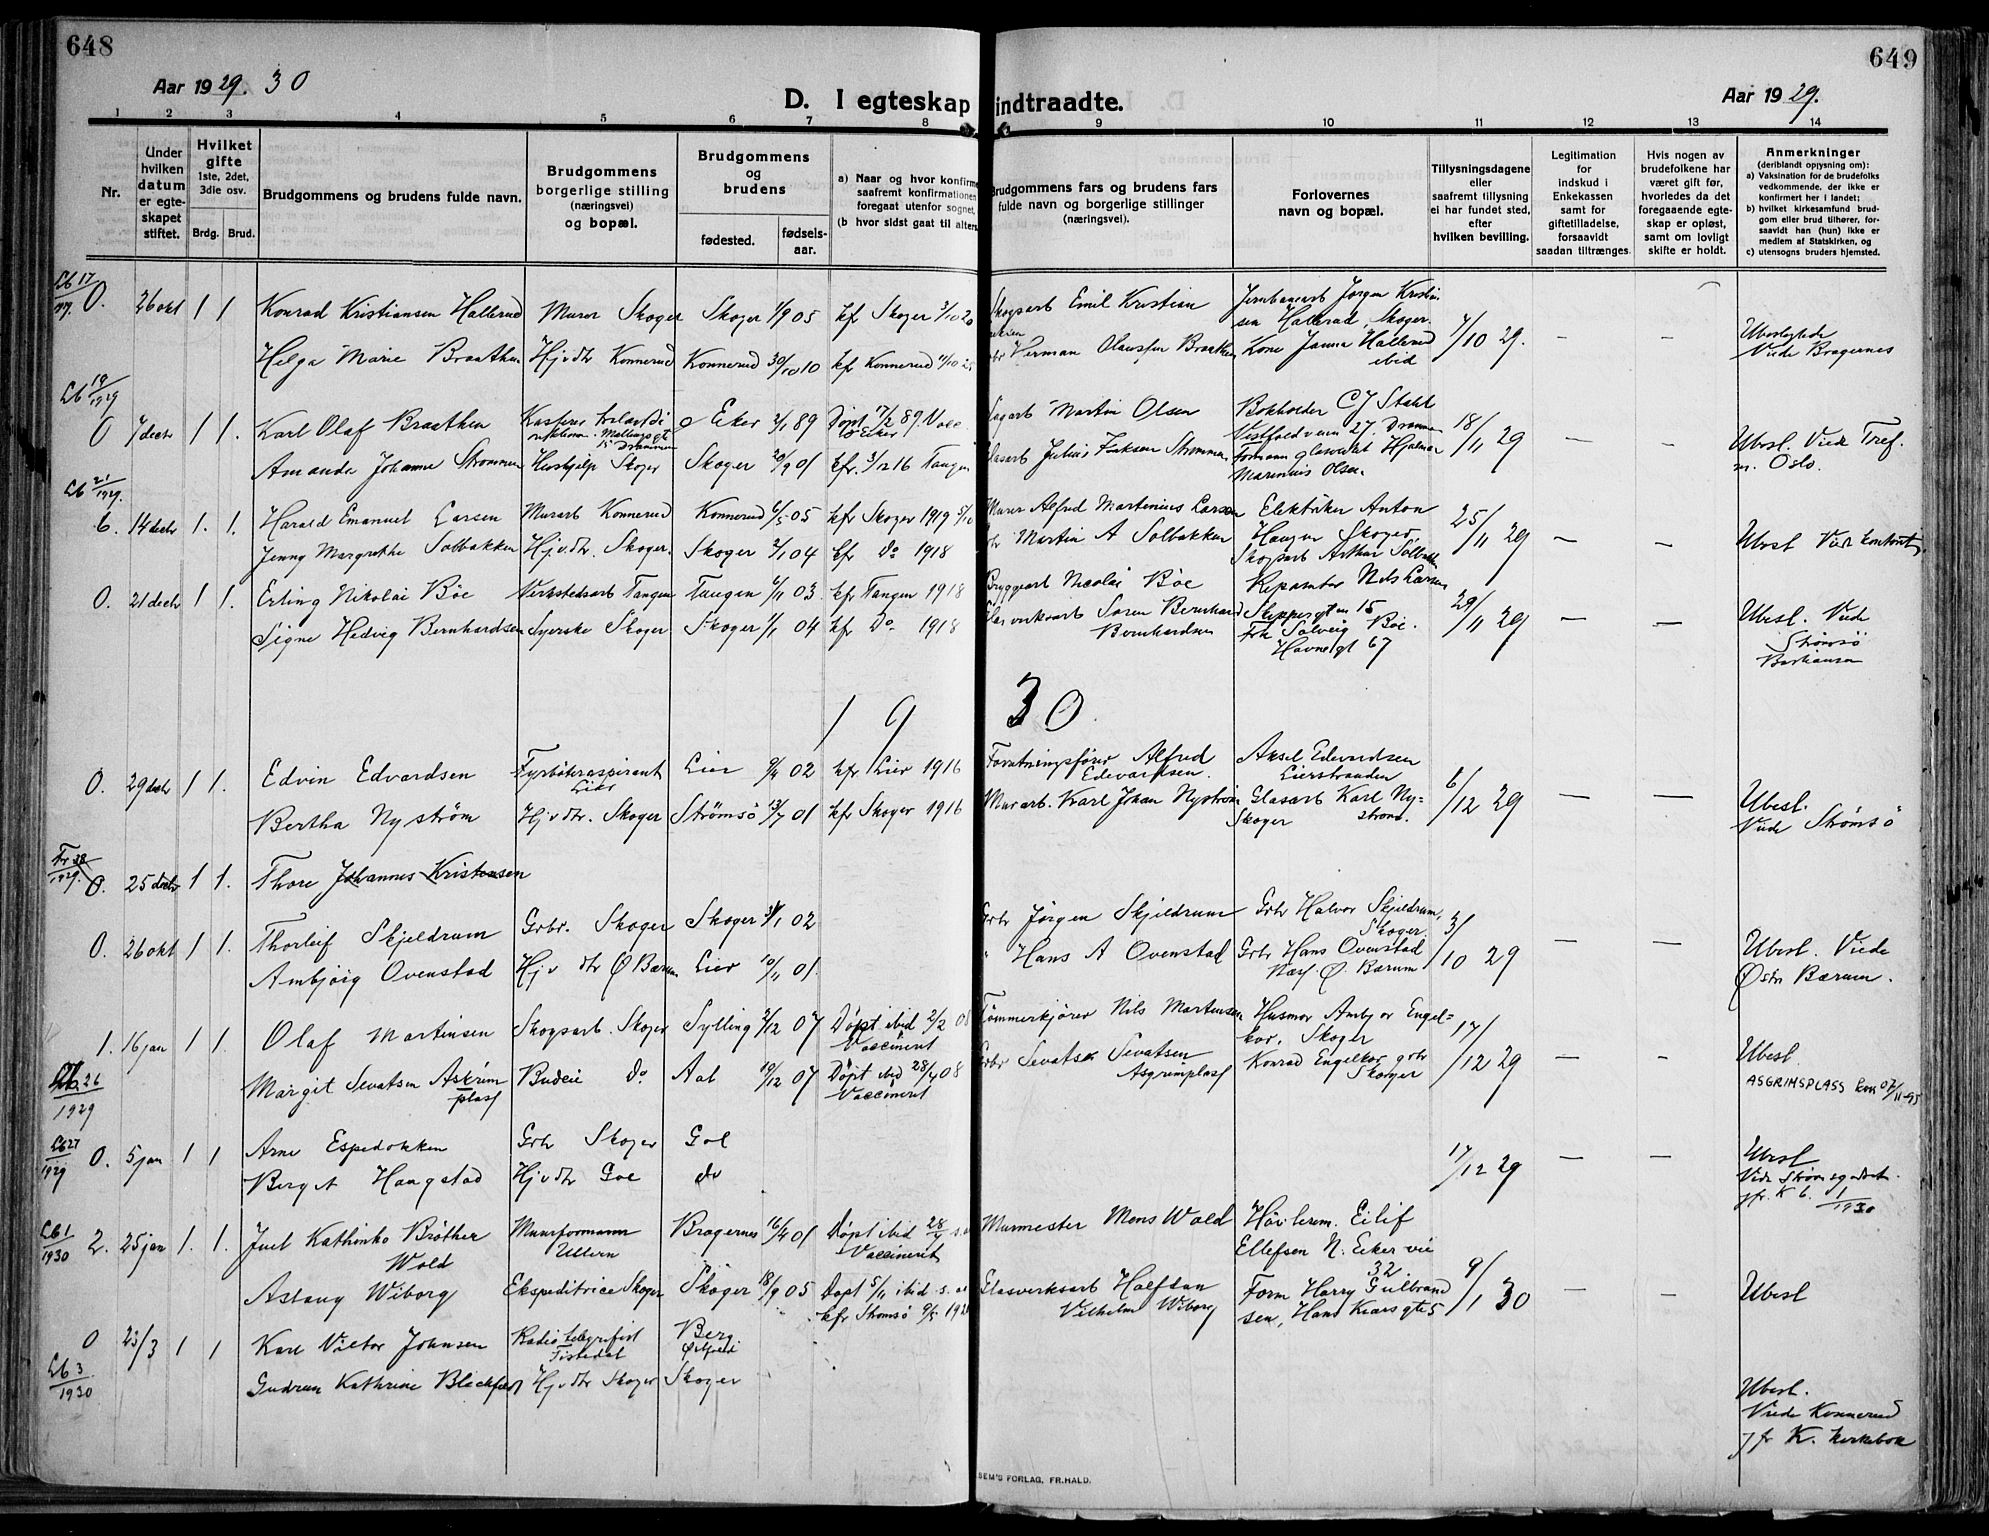 648
649
Aar 1929. 30
Aar 1929.
D. I egteskap indtraadte.
1 2 3 4 5 6 7 8 9 10 11 12 13 14
Nr.
Under hvilken datum er egteskapet stiftet.
Hvilket gifte 1ste, 2det, 3die osv.
Brdg. Brud.
Brudgommens og brudens fulde navn.
Brudgommens borgerlige stilling (næringsvei) og bopæl.
Brudgommens og brudens
fødested. fødsels-aar.
a) Naar og hvor konfirme saafremt konfirmationen foregaat utenfor sognet.
(b hvor sidst gaat til alters
Brudgommens fars og brudens fars fulde navn og borgerlige stillinger (næringsvei).
Forlovernes navn og bopæl.
Tillysningsdagene eller saafremt tillysning ei har fundet sted, efter hvilken bevilling.
Legitimation for indskud i Enkekassen samt for giftetilladelse, forsaavidt saadan tiltrænges.
Hvis nogen av brudefolkene har været gift før, hvorledes da det foregaaende egteskap er opløst, samt om lovligt skifte er holdt.
Anmerkninger (deriblandt opysning om):
a) Vaksination for de brudefolks vedkommende, der ikke er konfirmert her i landet;
b) hvilket kirkesamfund brudgom eller brud tilhører, forsaavidt han (hun) ikke er medlem af Statskirken, og
c) utensogns bruders hjemsted.
0. 26 okt 1 1 Konrad Kristiansen Hallerud Murer Skoger Skoger 1/9 05 kf Skoger 3/10 20 Skogsarb Emil Kristian Jernbanearb Jørgen Kristiansen Hallerud, Skoger. 7/10 29. — — Ubeslegtede
Helga Marie Braathen Hjv dtr Konnerud Konnerud 30/10 10 kf Konnerud Herman Olausen Braathen Kone Janna Hallerud ibid Viede Bragernes
Lb 19/1929
0 7 dechr 1 1. Karl Olaf Braathen Kasserer Eker 2/1 89 Døpt 17/2 89. Vacc. Sagarb Martin Olsen Bokholder CJ Stahl Vestfoldveien 27 Drammen 18/11 29 — — Ubesl. Viede Tref. m. Oslo.
Amanda Johanne Strømmen Hushjelp Skoger Skoger 20/9 01 kfr. 3/12 16 Tangen Glasarb Julius Isaksen Strømmen Formann glasverket Hjalmar Marenius Olsen.
Lb 21/1929.
6. 14 dechr 1. 1. Harald Emanuel Larsen Murarb Konnerud Konnerud 6/5 05 kfr Skoger 1919 5/10 Murer Alfred Martenius Larsen Elektriker Anton Hanger Skoger 25/11 29 — — Ubesl Vied kontoret,
Jenny Margrethe Solbakken Hjv dtr. Skoger. Skoger 2/1 04 kfr do 1918 Martin A Solbakken Skogsarb Arthur Solbakken
0. 21 dechr 1 1. Erling Nikolai Bøe Verkstedsarb Tangen Tangen 6/11 03 kfr Tangen 1918 Bryggearb Nicolai Bøe Reparatør Nils Larsen Skippergaten 15 29/11 29 — — Ubesl. Viede Strømsø
Signe Hedvig Bernhardsen Syerske Skoger Skoger 1/1 04 kfr Do 1918 Glasverksarb Søren Bernhard Bernhardsen Frk Solveig Bøe. Havnegt 67
19 30.
0. 29 dechr 1 1. Edvin Edvardsen Fyrbøteraspirant Lier Lier 9/4 02 kfr Lier 1916 Forretningsfører Alfred Edevardsen. Aksel Edevardsen Lierstranden 6/12 29 — — Ubesl.
Bertha Nystrøm Hjv dtr. Skoger Strømsø 13/7 01 kfr Skoger 1916 Murarb. Karl Johan Nystrøm Glasarb Karl Nystrøm. Skoger Viede Strømsø
0. 25 dechr 1 1. Thore Johannes Kristensen
0. 26 okt 1 1. Thorleif Skjeldrum Grbr. Skoger Skoger 31/1 02 Grbr Jørgen Skjeldrum Grbr Halvor Skjeldrum, Skoger. 3/10 29 — — Ubesl. Viede
Ambjørg Ovenstad Hjv dtr Ø Bærum Lier 10/11 01. " Hans A Ovenstad Grbr Hans Ovenstad Næsf. Ø. Bærum Østre Bærum.
1. 16 jan 1 1. Olaf Martinsen Skogsarb. Skoger Sylling 2/12 07 Døpt ibid 2/2 08 Vaccineret Tømmerkjører Nils Martensen Husmor Ambjør Engelkor. Skoger 17/12 29 — — Ubesl.
Lb. 26/1929
Margit Sevatsen Askrimplass Budeie do Aal 19/12 07 Døpt ibid 28/4 08 Vaccineret Grbr Sevats Sevatsen Asgrimplass Konrad Engelkor grbr Skoger ASGRIMSPLASS
Lb 27/1929
0. 5 jan 1 1 Arne Espedokken Grbr Skoger Gol 17/12 29 — — Ubesl
Berget Haugstad Hjv dtr Gol do Jfr. K b. 1/1930
Lb 1/1930
2. 25 jan 1. 1. Juel Kathinko Brøther Wold Muurformann Ullern Bragernes 16/4 01 Døpt ibid 28/4 Vaccineret Murmester Mons Wold Høvlerem. Eilif Ellefsen N. Eker vie 32. 9/1 30 — — Ubesl
Aslaug Wiborg Ekspeditrice Skoger Skoger 18/9 05 Døpt 5/11 ibid kfr Strømsø Glasverksarb Halfdan Vilhelm Wiborg Form Harry Gulbrandsen, Hans Kiærs gt 5
0 23/3 1 1 Karl Victor Johnsen Radiotelegrafist Tistedal Berg Østfold
Lb 3/1930
Gudrun Kathrine Blekfjed Hjv dtr Skoger Skoger Ubesl.
Viede Konnerud
jfr K. kirkebok
SEM'S FORLAG, FR.HALD.